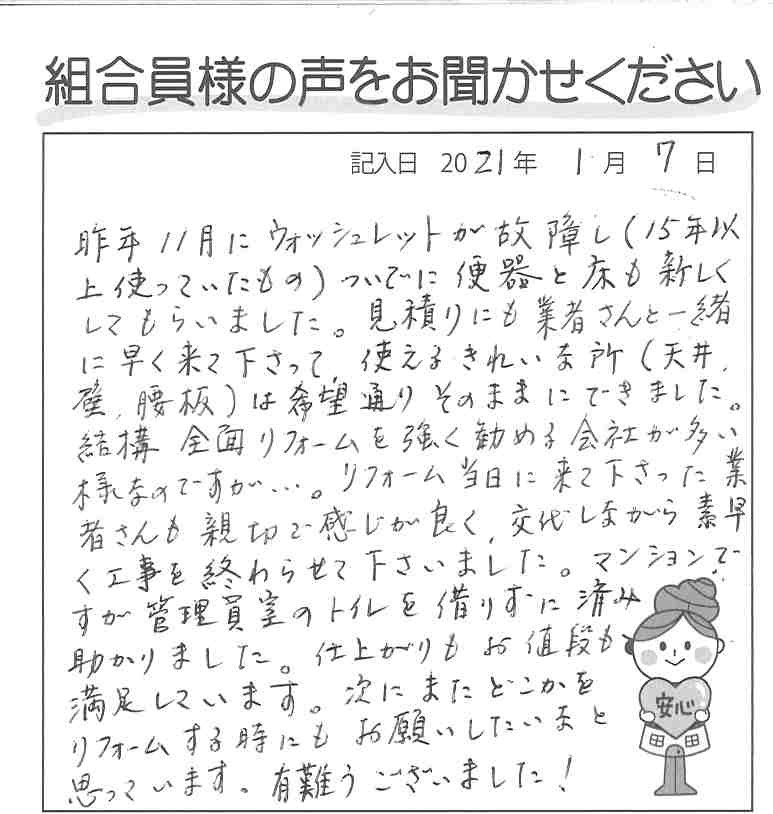 組合員様の声をお聞かせください
記入日 2021年 1月 7日
昨年11月にウォッシュレットが故障し(15年以
上使っていたもの)ついでに便器と床も新しく
してもらいました。見積りにも業者さんと一緒
に早く来て下さって、使えるきれいな所(天井,
壁,腰板)は希望通りそのままにできました。
結構 全面リフォームを強く勧める会社が多い
様なのですが…。リフォーム当日に来て下さった業
者さんも親切で感じが良く、交代しながら素早
く工事を終わらせて下さいました。マンションで
すが管理員室のトイレを借りずに済み
助かりました。仕上がりもお値段も
満足しています。次にまたどこかを
リフォームする時にもお願いしたいなと
思っています。有難うございました!
安心